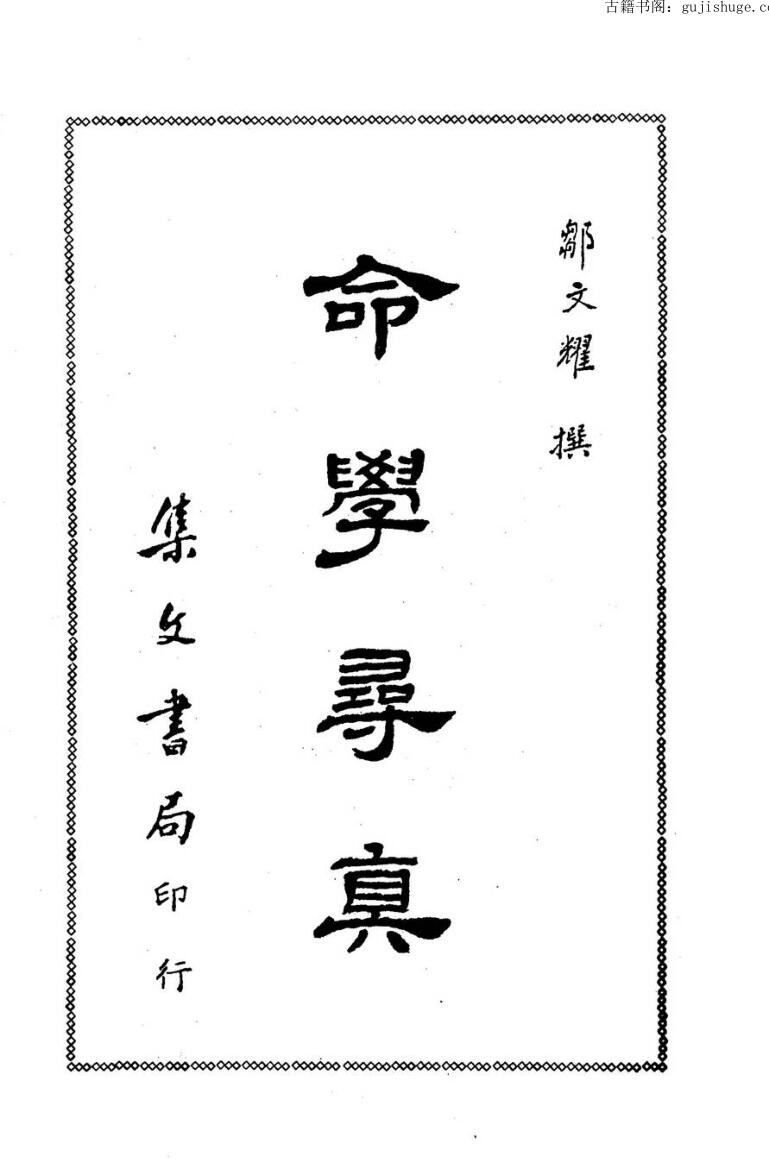 古籍书阁：gujishuge.co
鄒文耀 撰
命學尋真
集文書局印行